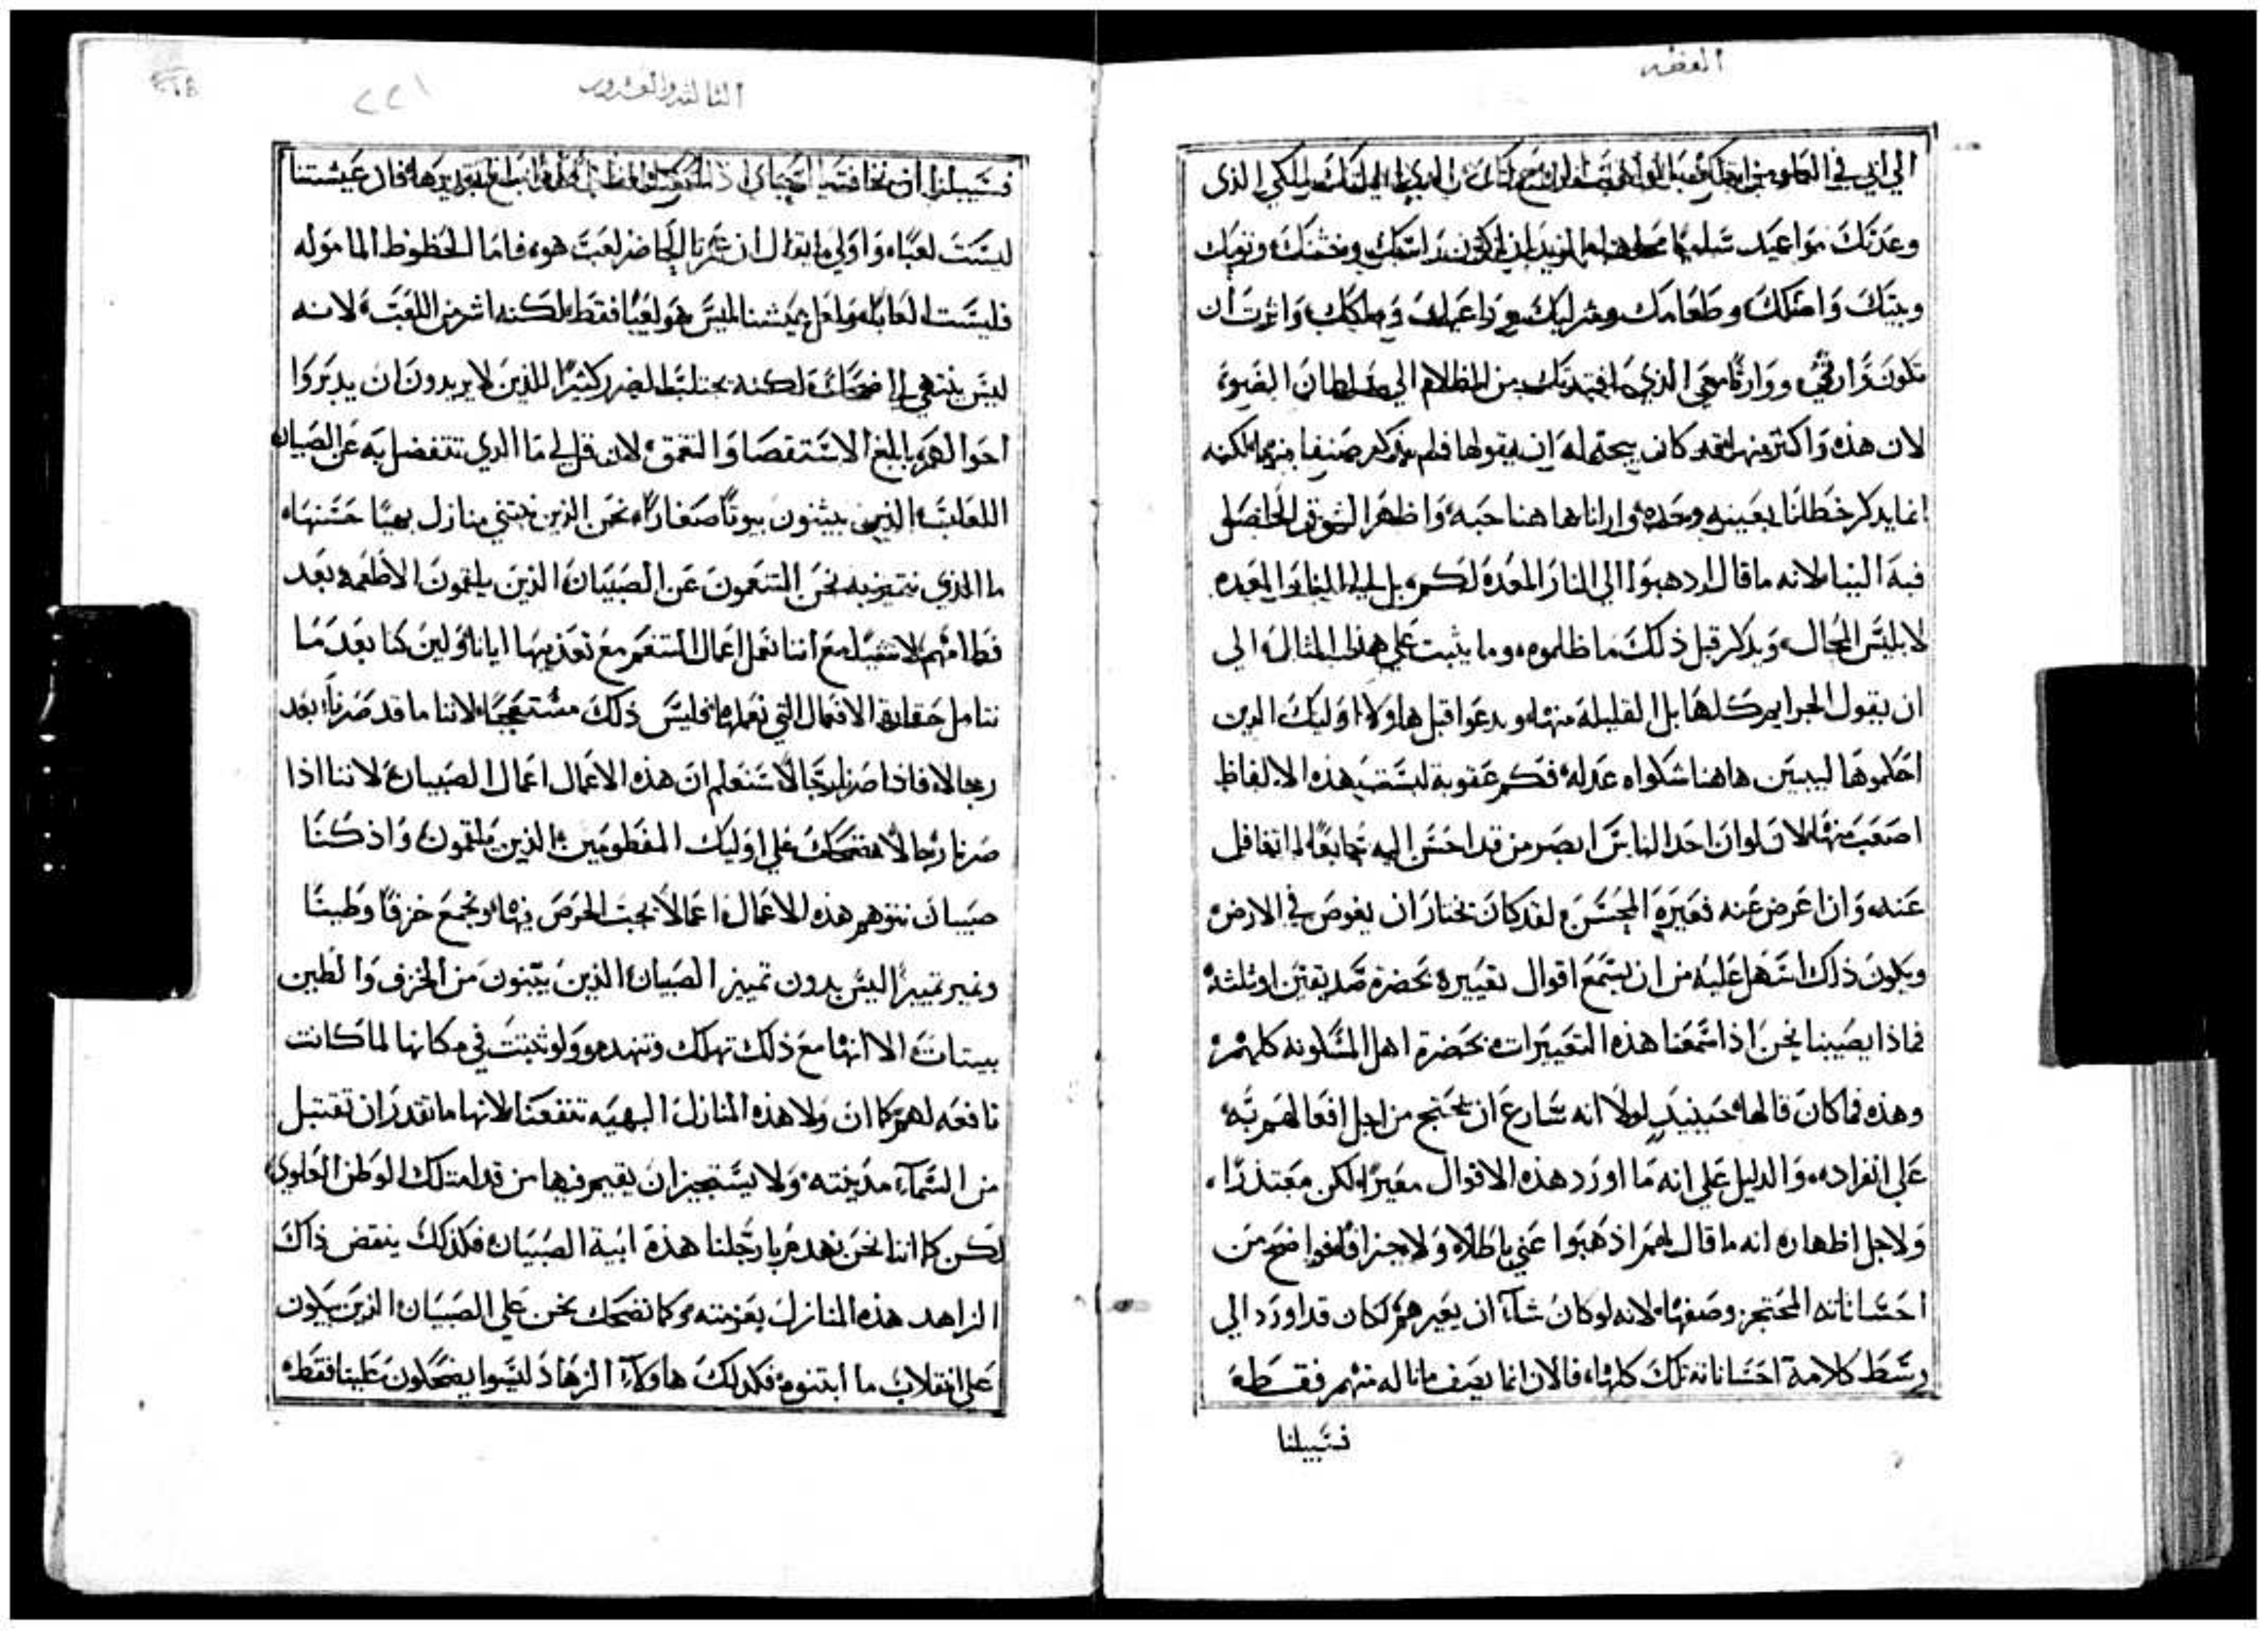 العظه
الي ابي في
وعدتك مواعيد
وبيتك وامتلك وطعامك وشرابك
تكون وارثي ووارثًا معي الذي افتديتك من الظلام الي سلطان الضو
لان هذه واكثر منها لقد كان يحتمله ان يقولها فلم يذكر صنفا منها لكنه
انما يذكر خطلنا بعينه وحده وارانا هاهنا حبه واظهر الشوق الحاصل
فيه الينا لانه ما قال اذهبوا الي النار المعده لكم بل الي النار المعده
لابليس المحال ويذكر قبل ذلك ما ظلموه وما يثبت علي هذا المثال الي
ان يقول الجرايم كلها بل القليلة منها ويدعوا قبل هاولا اوليك الدين
احكموها ليبين هاهنا شكواه عدله فكم عقوبة ليست هذه الالفاظ
اصعب منها لان لوان احد الناس ابصر من قد احسن اليه جايعًا لما تغافل
عنه وان اعرض عنه فعيره المحسن لقد كان يختار ان يغوص في الارض
ويكون ذلك اسهل عليه من ان يسمع اقوال تعييره بحضرة صديقين او ثلثة
فماذا يصيبنا نحن اذا سمعنا هذه التعييرات بحضرة اهل المسكونه كلهم
وهذه فما كان قالها حينيد لولا انه سارع ان يحتج من اجل افعالهم به
علي انفراده والدليل علي انه ما اورد هذه الاقوال معيرًا لكن معتذرًا
ولاجل اظهاره انه ما قال لهم اذهبوا عني باطلاً ولا جزافًا فواضح من
احساناته المحتجز وصفها لانه لو كان شآ ان يعيرهم لكان قد اورد الي
وسط كلامة احساناته تلك كلها فالان انما يصف ما ناله منهم فقط
فسبيلنا
الثالثه والعشرون
٢٢١
فسبيلنا ان نخاف
ليست لعبًا واولي ما يقال ان عمرنا الحاضر لعب هو فاما الحظوظ المامولة
فليست العابًا ولعل عيشنا ليس هو لعبًا فقط لكنه اشر من اللعب لانه
ليس ينتهي الي ضحك لكنه يجتلب الضرر كثيرًا للذين لا يريدون ان يدبروا
احوالهم بابلغ الاستقصا والتعمق لان قل لي ما الذي نتفضل به عن الصبيان
اللعابة الذين يبنون بيوتًا صغارًا نحن الذين نبتني منازل بهيًا حسنها
ما الذي نتميز به نحن المتنعمون عن الصبيان الذين يلقمون الاطعمه بعد
فطامهم لا شي مع اننا نعمل اعمال التنعم مع تعذيبها ايانا ولين كنا بعد ما
نتامل حقارة الافعال التي نعملها فليس ذلك مستعجبًا لاننا ما قد صرنا بعد
رجالا فاذا صرنا رجالاً سنعلم ان هذه الاعمال اعمال الصبيان لاننا اذا
صرنا رجالاً نضحك علي اوليك المفطومين الذين يلقمون واذ كنا
صبيان نتوهم هذه الاعمال اعمالاً يجب الحرص فيها ونجمع خزفًا وطينًا
ونميز تمييزًا ليس بدون تمييز الصبيان الذين يبنون من الخزف والطين
بيتات الا انها مع ذلك تهلك وتنهدم ولو ثبتت في مكانها لما كانت
نافعه لهم كما ان ولا هذه المنازل البهيه تنفعنا لانها ما تقدر ان تقتبل
من السمآ مدينته ولا يستجيز ان يقيم فيها من قد امتلك الوطن العلوي
لكن كما اننا نحن نهدم بارجلنا هذه ابنية الصبيان فكذلك ينقض ذاك
الزاهد هذه المنازل بعزمته وكما نضحك نحن علي الصبيان الذين يبكون
علي انقلاب ما ابتنوه فكذلك هاولآ الزهاد ليسوا يضحكون علينا فقط